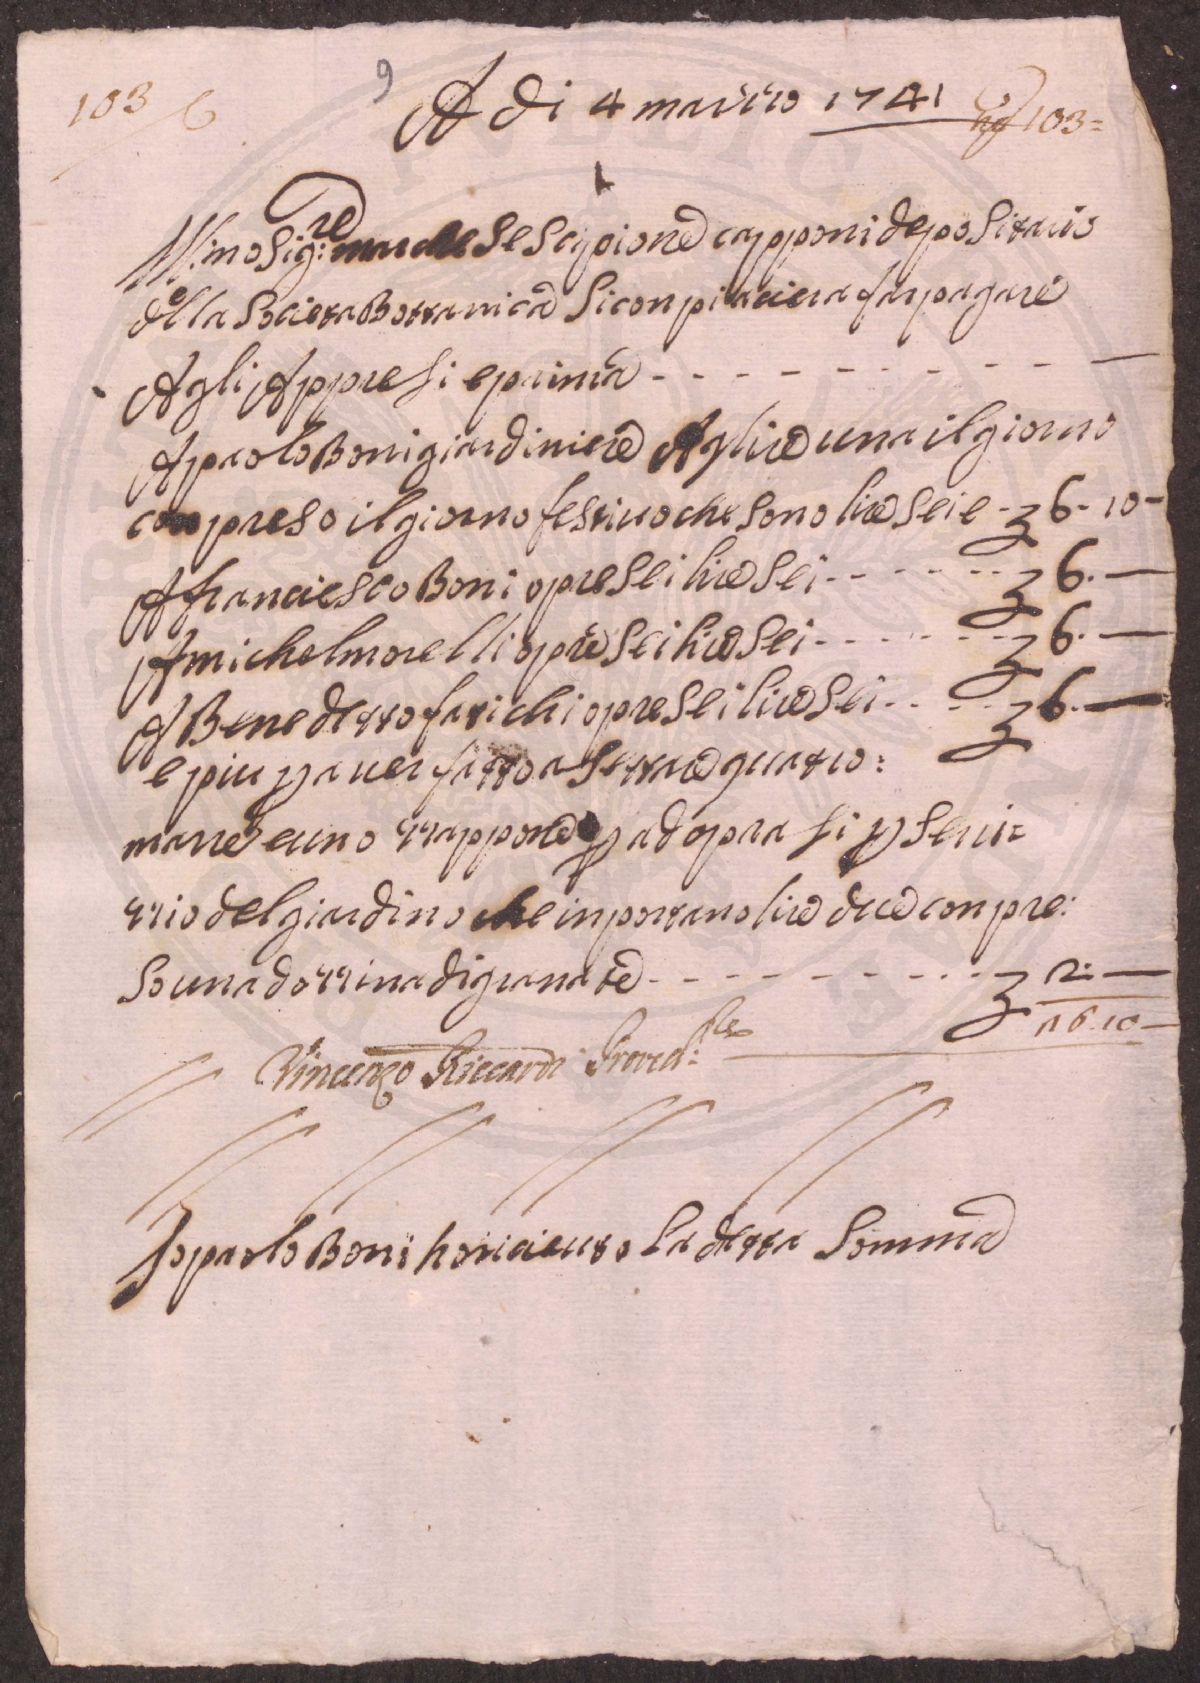 103 6 9 A di 4 marzio 1741 103=
1
Ill:mo Sig:re marchese Scipione capponi depositario
della Societa Bottanica Si conpiaciera far pagare
Agli Appresi e prima
A paolo Boni giardiniere A lire una il giorno
conpreso il giorno festiuo che sono lire Sei e - 6 - 10 -
A franciesco Boni opre Sei lire Sei - 6. -
A michel morelli opre Sei lire Sei - 6. -
A Benedetto farichi opre Sei lire Sei - 6. -
e piu p auer fatto asettare quatro:
marre e uno zappone p adoprasi p serui:
zio del giardino che inportano lire dua conpre:
So una dozzina di granate - 2. -
26.10 -
Vincenzo Riccardi Proved:re
Io paolo Boni ho riceuto la detta Somma